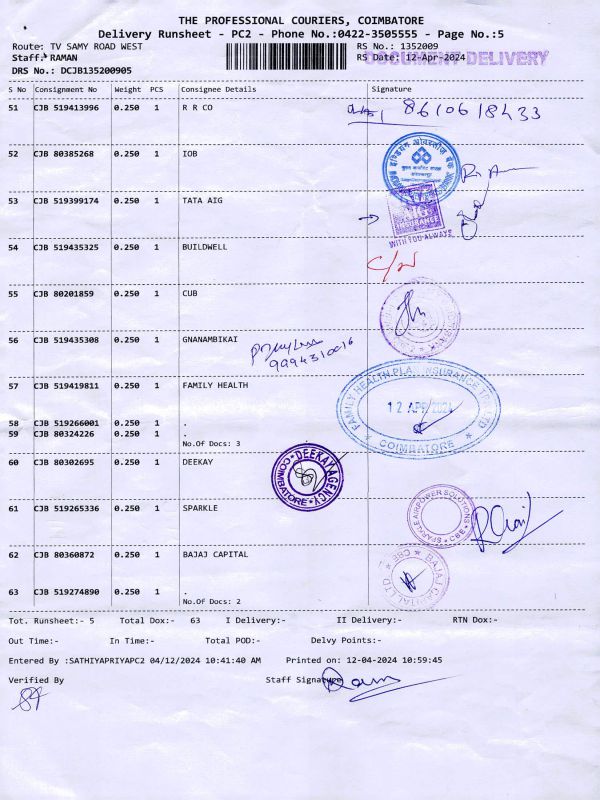 THE PROFESSIONAL COURIERS, COIMBATORE
Delivery Runsheet - PC2 - Phone No.:0422-3505555 - Page No.:5
Route: TV SAMY ROAD WEST RS No.: 1352009
Staff: RAMAN RS Date: 12-Apr-2024 DOCUMENT DELIVERY
DRS No.: DCJB135200905
S No Consignment No Weight PCS Consignee Details Signature
51 CJB 519413996 0.250 1 R R CO 8610618433
52 CJB 80385268 0.250 1 IOB
इण्डियन ओवरसीज बैंक
53 CJB 519399174 0.250 1 TATA AIG
INSURANCE
WITH YOU ALWAYS
54 CJB 519435325 0.250 1 BUILDWELL
55 CJB 80201859 0.250 1 CUB
56 CJB 519435308 0.250 1 GNANAMBIKAI
9994310016
57 CJB 519419811 0.250 1 FAMILY HEALTH
FAMILY HEALTH PLAN INSURANCE TPA LTD
12 APR 2024
COIMBATORE
58 CJB 519266001 0.250 1 .
59 CJB 80324226 0.250 1 .
No.Of Docs: 3
60 CJB 80302695 0.250 1 DEEKAY
DEEKAY AGENCY
COIMBATORE
61 CJB 519265336 0.250 1 SPARKLE
SPARKLE AIRPOWER SOLUTIONS
CBE
62 CJB 80360872 0.250 1 BAJAJ CAPITAL
BAJAJ CAPITAL LTD
CBE
63 CJB 519274890 0.250 1 .
No.Of Docs: 2
Tot. Runsheet:- 5 Total Dox:- 63 I Delivery:- II Delivery:- RTN Dox:-
Out Time:- In Time:- Total POD:- Delvy Points:-
Entered By :SATHIYAPRIYAPC2 04/12/2024 10:41:40 AM Printed on: 12-04-2024 10:59:45
Verified By Staff Signature Ram